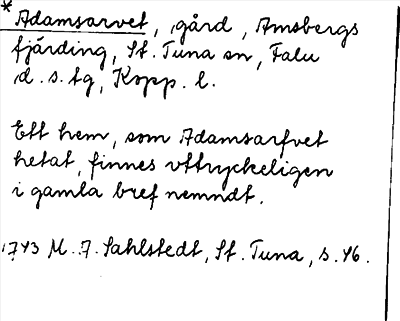 * Adamsarvet, gård, Amsbergs
fjärding, St. Tuna sn, Falu
d. s. tg, Kopp. l.
Ett hem, som Adamsarfvet
hetat, finnes vttryckeligen
i gamla bref nemndt.
1743 M. F. Sahlstedt, St. Tuna, s. 46.